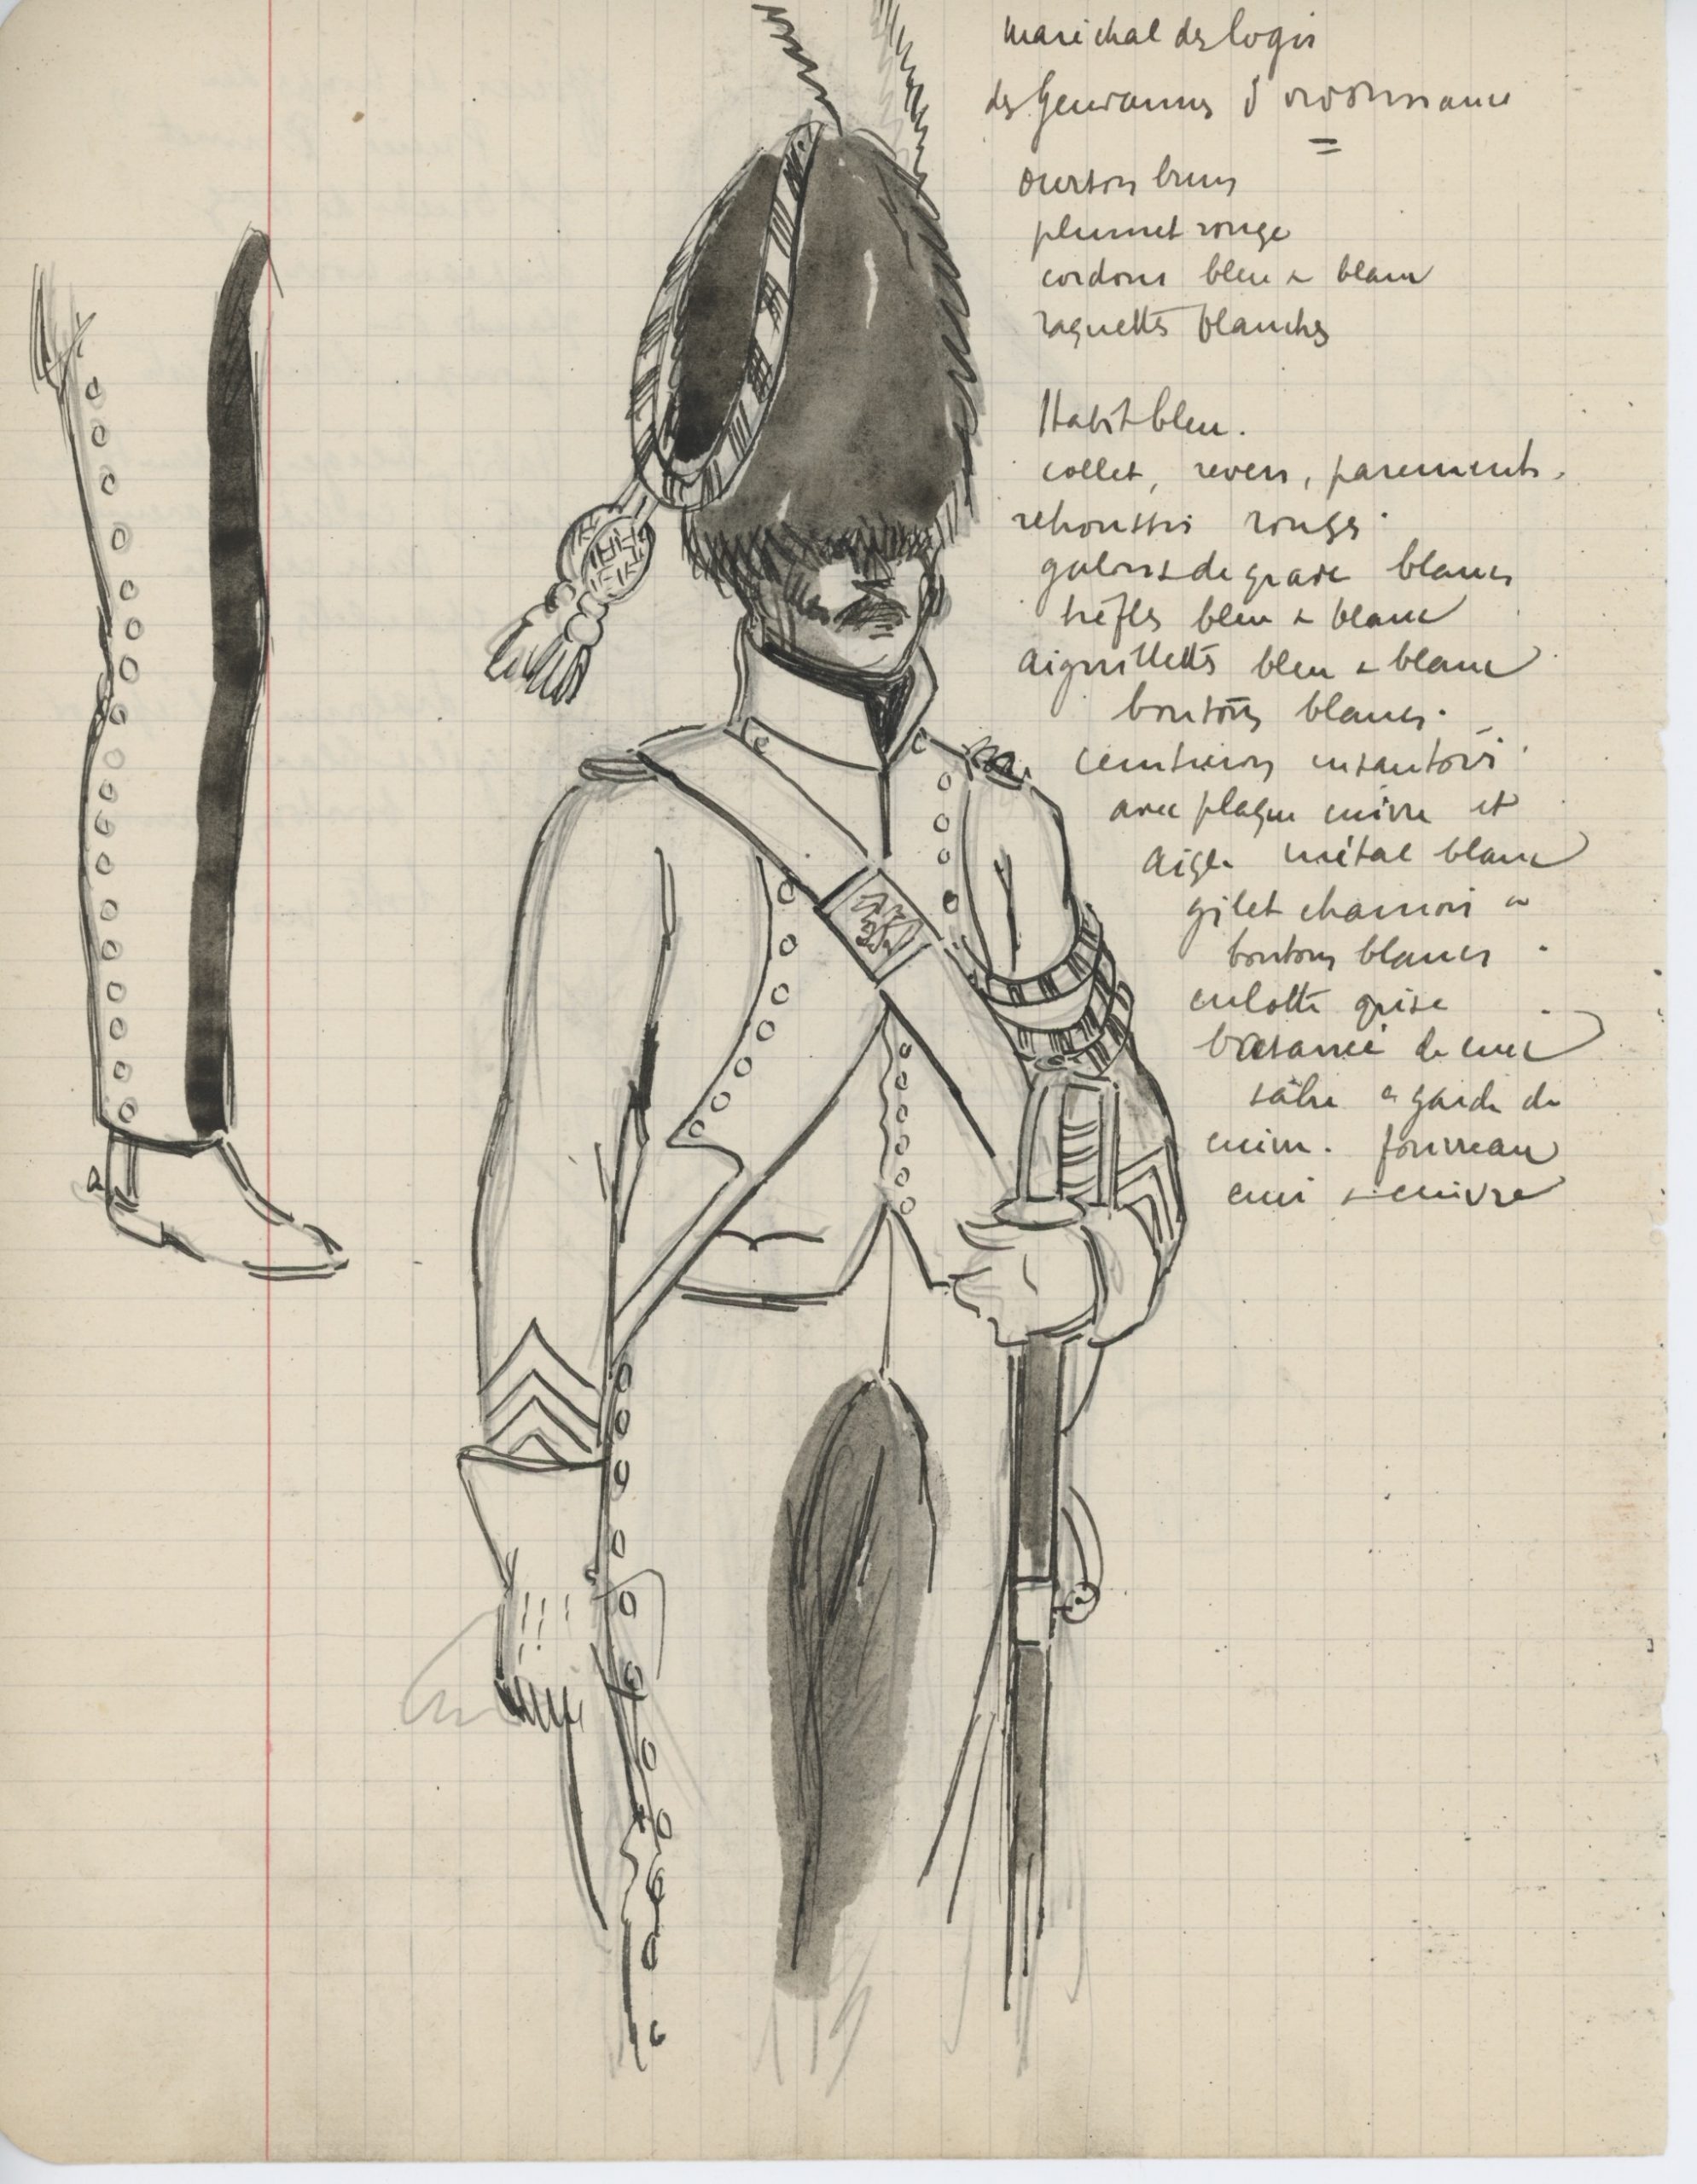 marechal des logis
des Gendarmes d'ordonnance
=
ourson brun
plumet rouge
cordons bleu & blanc
raquettes blanches
Habit bleu.
collet, revers, parements.
retroussis rouges
galons de grade blancs
trèfles bleu & blanc
aiguillettes bleu & blanc
boutons blancs.
ceinturon en sautoir
avec plaque cuivre et
aigle métal blanc
gilet chamois
boutons blancs
culotte grise
basanée de cuir
sabre garde de
cuivre. fourreau
cuir & cuivre